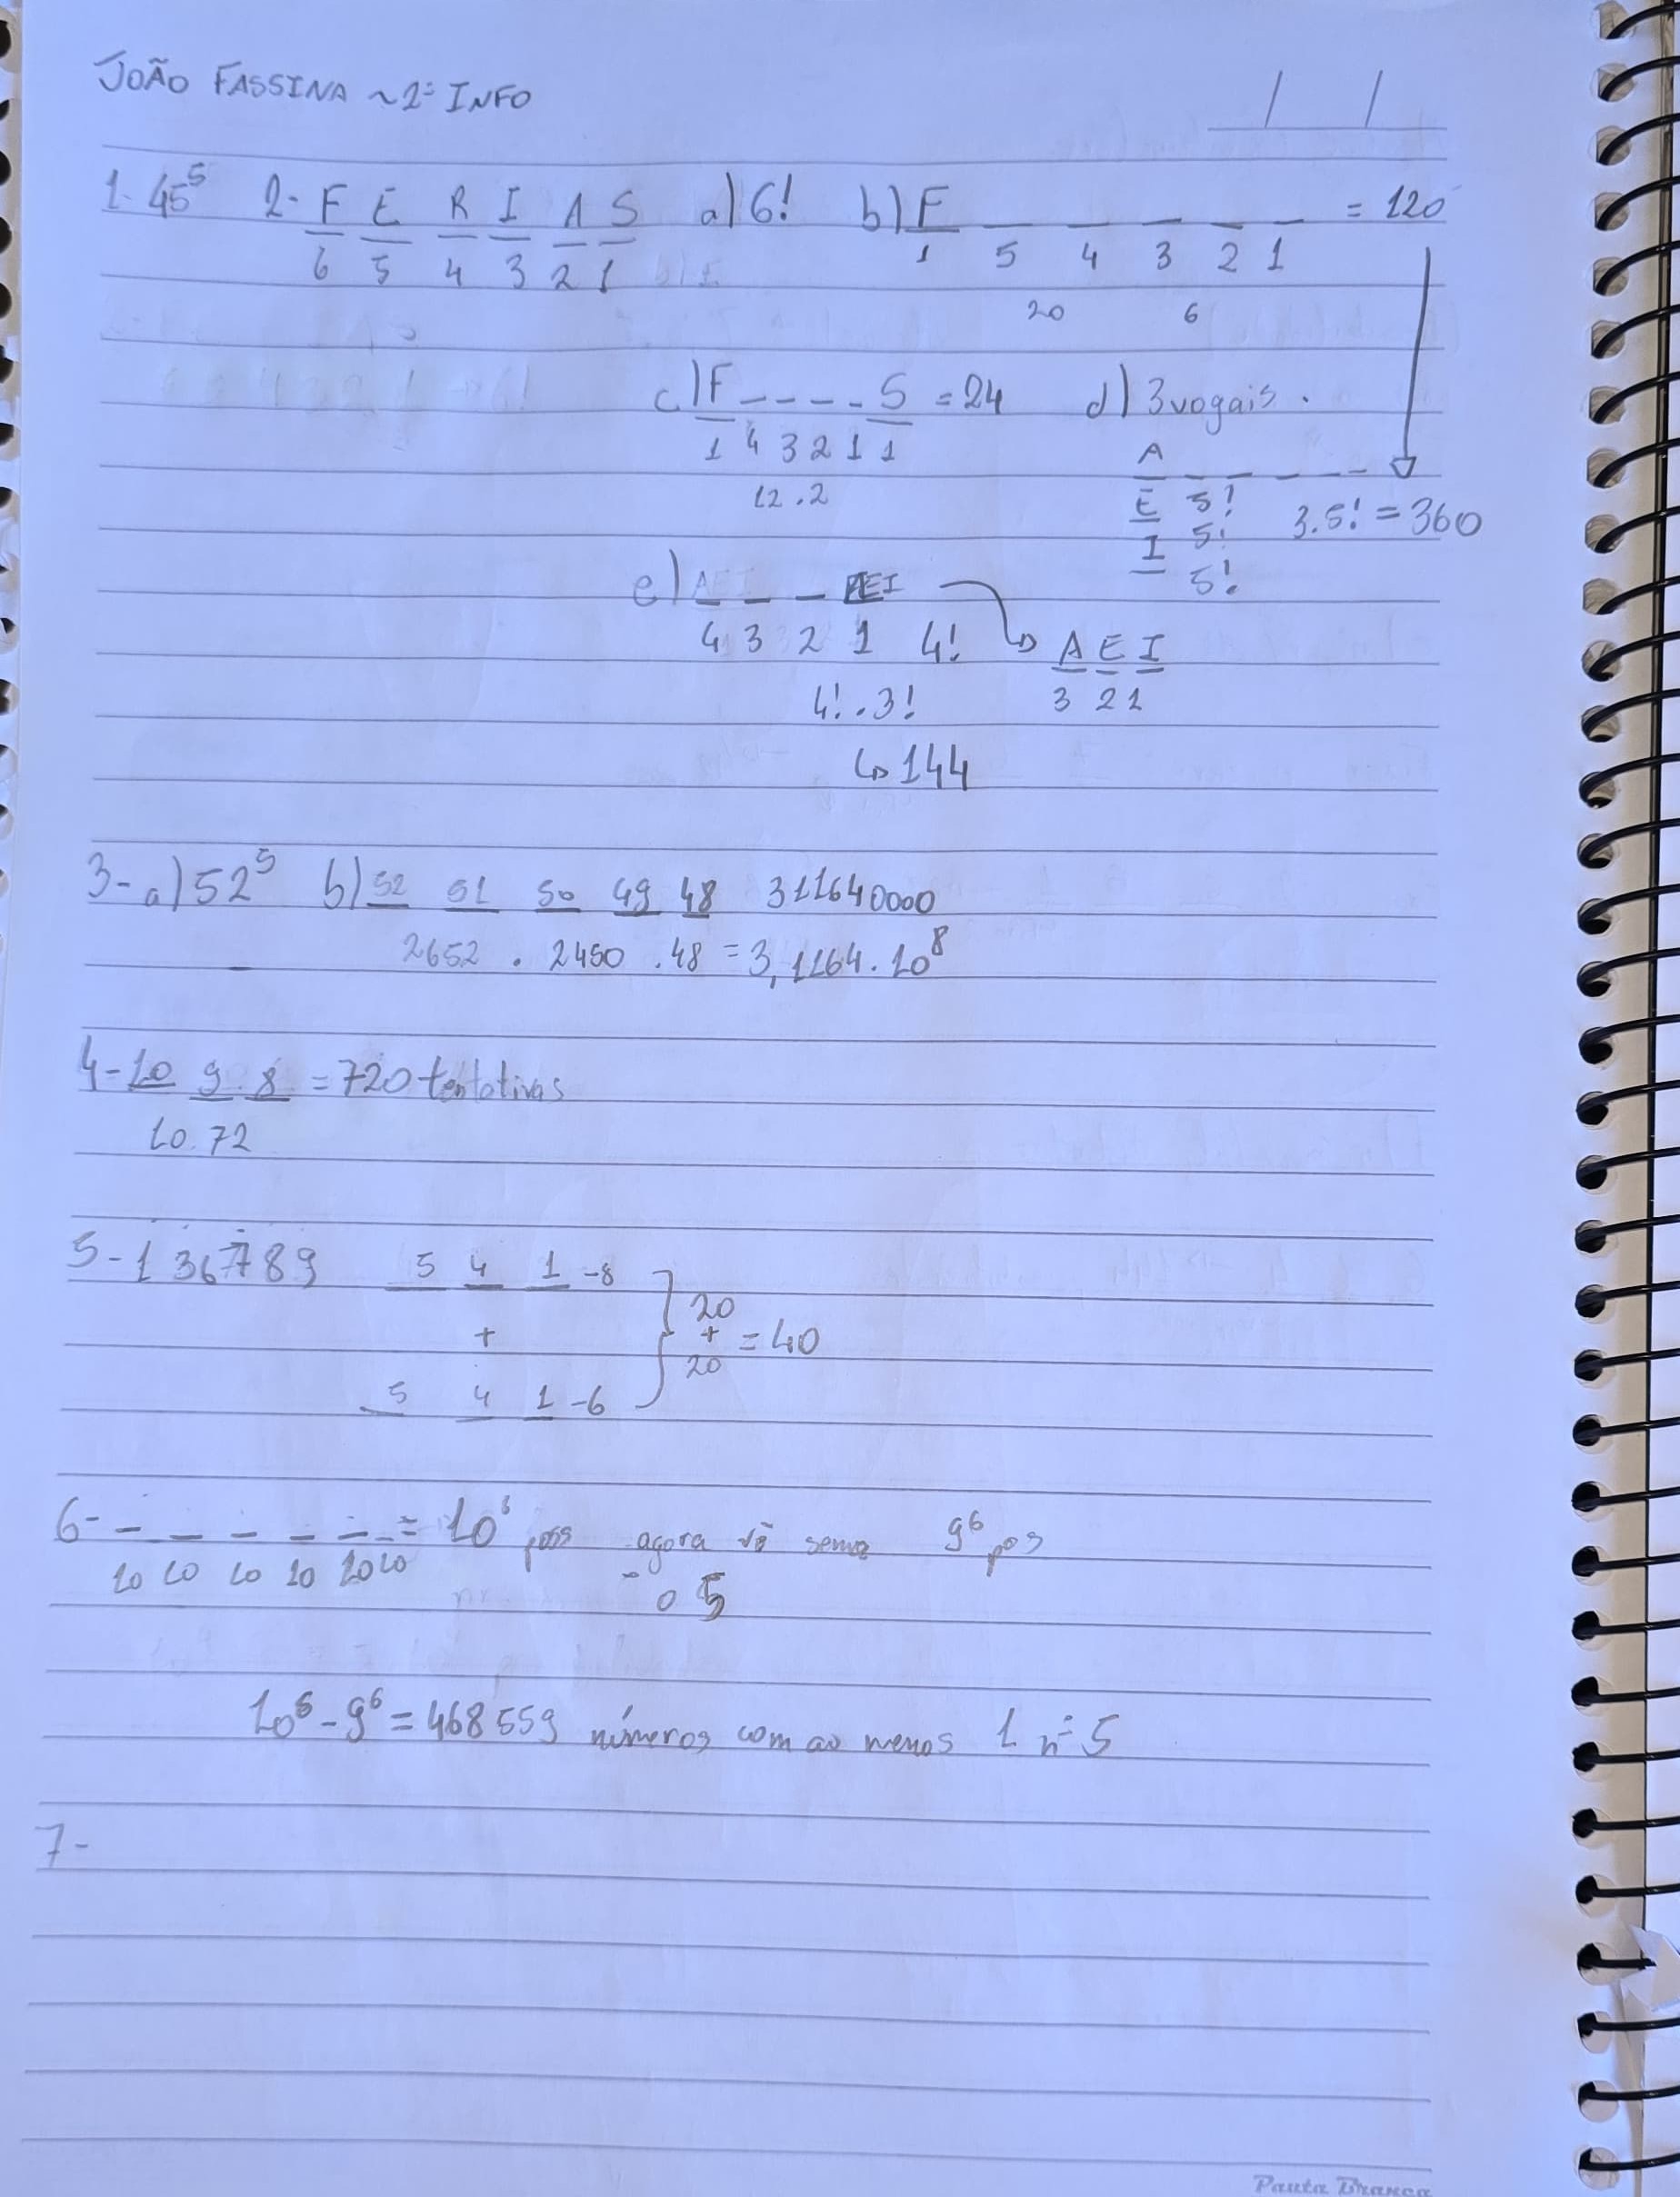 JOÃO FASSINA ~2º INFO
/ /
1- 45⁵ 2- F E R I A S a) 6! b) F _ _ _ _ _ = 120
6 5 4 3 2 1 1 5 4 3 2 1
20 6
c) F _ _ _ _ S = 24 d) 3 vogais.
1 4 3 2 1 1 A _ _ _ _ _
12.2 E 5! 3.5! = 360
I 5!
5!
e) _ _ _ AEI
4 3 2 1 4! ↳ A E I
4!.3! 3 2 1
↳ 144
3- a) 52⁵ b) 52 51 50 49 48 311640000
2652 . 2450 .48 = 3,1164.10⁸
4- 10 9 8 = 720 tentativas
10.72
5- 1 3 6 7 8 9 5 4 1 -8
+ 20 + 20 = 40
5 4 1 -6
6- _ _ _ _ _ _ = 10⁶ pos agora vê 9⁶ pos
10 10 10 10 10 10 - o 5
10⁶ - 9⁶ = 468559 números com ao menos 1 nº 5
7-
Pauta Branca